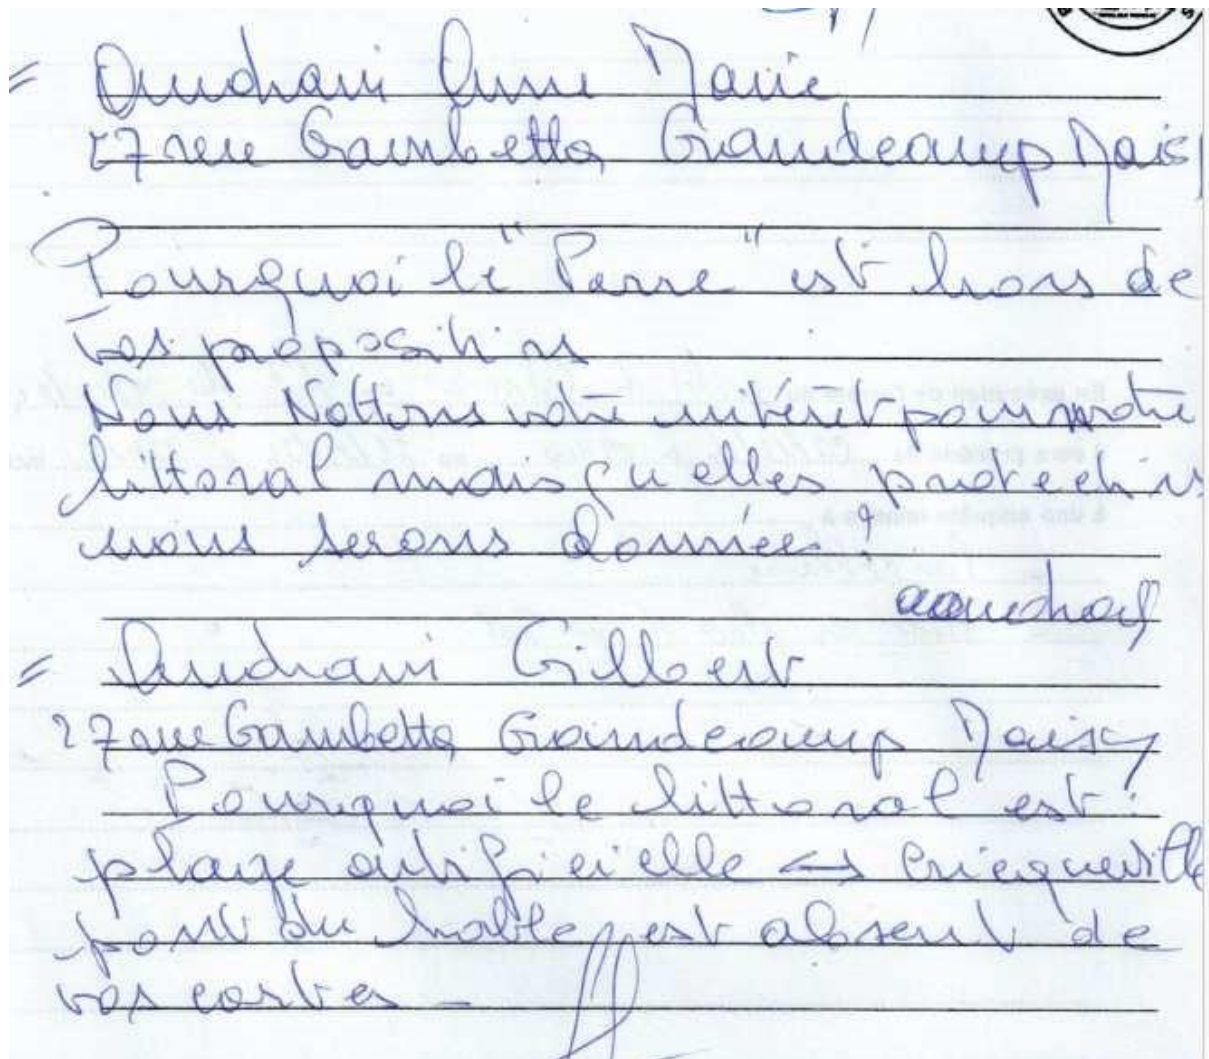 = Audrain Anne Marie
27 rue Gambetta Grandcamp Maisy
Pourquoi le "Perré" est hors de
vos propositions
Nous Notons votre intérêt pour notre
littoral mais qu'elles protections
nous serons données?
= Audrain Gilbert
27 rue Gambetta Grandcamp Maisy
Pourquoi le littoral est:
plage artificielle ↔ Cricqueville
pont du hable est absent de
vos cartes -